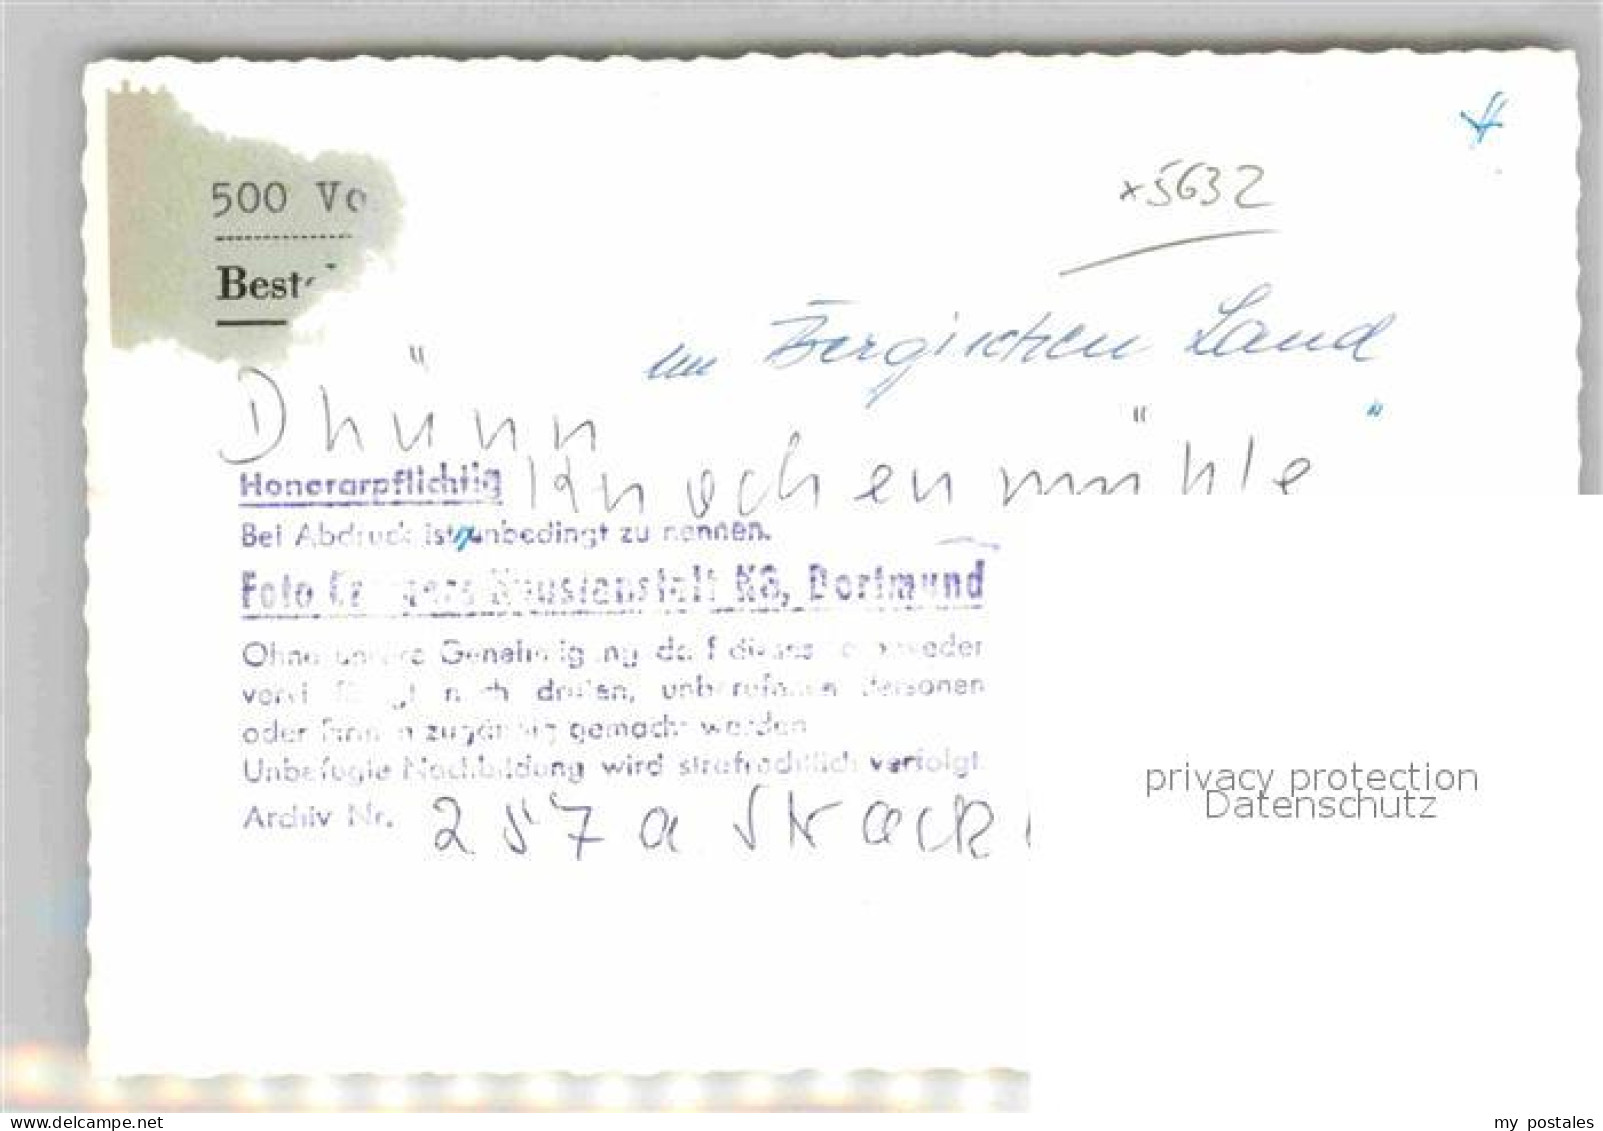 500 Vo
Beste
x5632
im Bergischen Land
Dhünn
Knochenmühle"
Honorarpflichtig
Bei Abdruck ist unbedingt zu nennen.
Foto Kunstanstalt KG, Dortmund
Ohne unsere Genehmigung darf dieses entweder
noch dritten, unberufenen Personen
oder Firmen zugängig gemacht werden
Unbefugte Nachbildung wird strafrechtlich verfolgt.
Archiv Nr. 257a Strack
privacy protection
Datenschutz
delcampe.net
my_postales